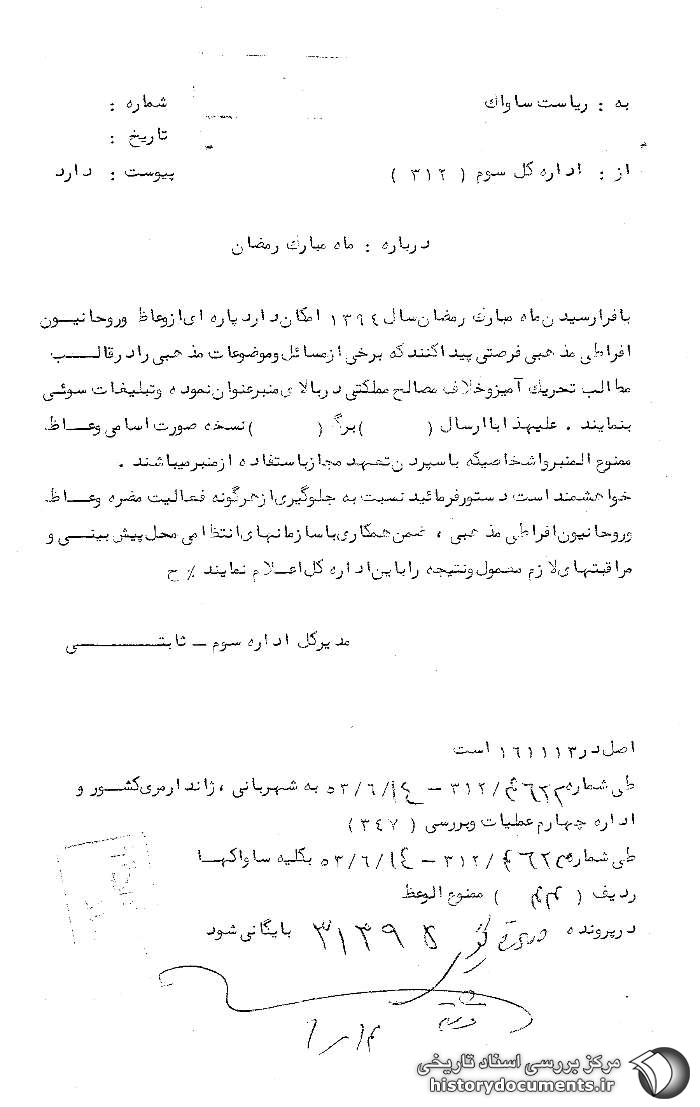 به : ریاست ساواك
شماره :
تاریخ :
از : اداره کل سوم ( ۳۱۲ )
پیوست : دارد
درباره : ماه مبارك رمضان
بافرارسیدن ماه مبارك رمضان سال ۱۳۹٤ امکان دارد پاره ای ازوعاظ وروحانیون
افراطی مذهبی فرصتی پیدا کنند که برخی ازمسائل وموضوعات مذهبی رادرقالب
مطالب تحریك آمیزوخلاف مصالح مملکتی دربالای منبرعنوان نموده وتبلیغات سوئی
بنمایند . علیهذا باارسال ( )برگ ( )نسخه صورت اسامی وعاظ
ممنوع المنبرواشخاصیکه باسپردن تعهد مجازباستفاده ازمنبرمیباشند .
خواهشمند است دستورفرمائید نسبت به جلوگیری ازهرگونه فعالیت مضره وعاظ
وروحانیون افراطی مذهبی ، ضمن همکاری باسازمانهای انتظامی محل پیش بینی و
مراقبتهای لازم معمول ونتیجه راباین اداره کل اعلام نمایند ٪ ح
مدیرکل اداره سوم ـ ثابتی
اصل در ۱٦۱۱۱۳ است
طی شماره /۳۱۲ – ۵۳/٦/۱٤ به شهربانی ، ژاندارمری کشور و
اداره چهارم عملیات وبررسی ( ۳٤۷ )
طی شماره /۳۱۲ – ۵۳/٦/۱٤ بکلیه ساواکها
ردیف ( ) ممنوع الوعظ
درپرونده بایگانی شود
مرکز بررسی اسناد تاریخی
historydocuments.ir